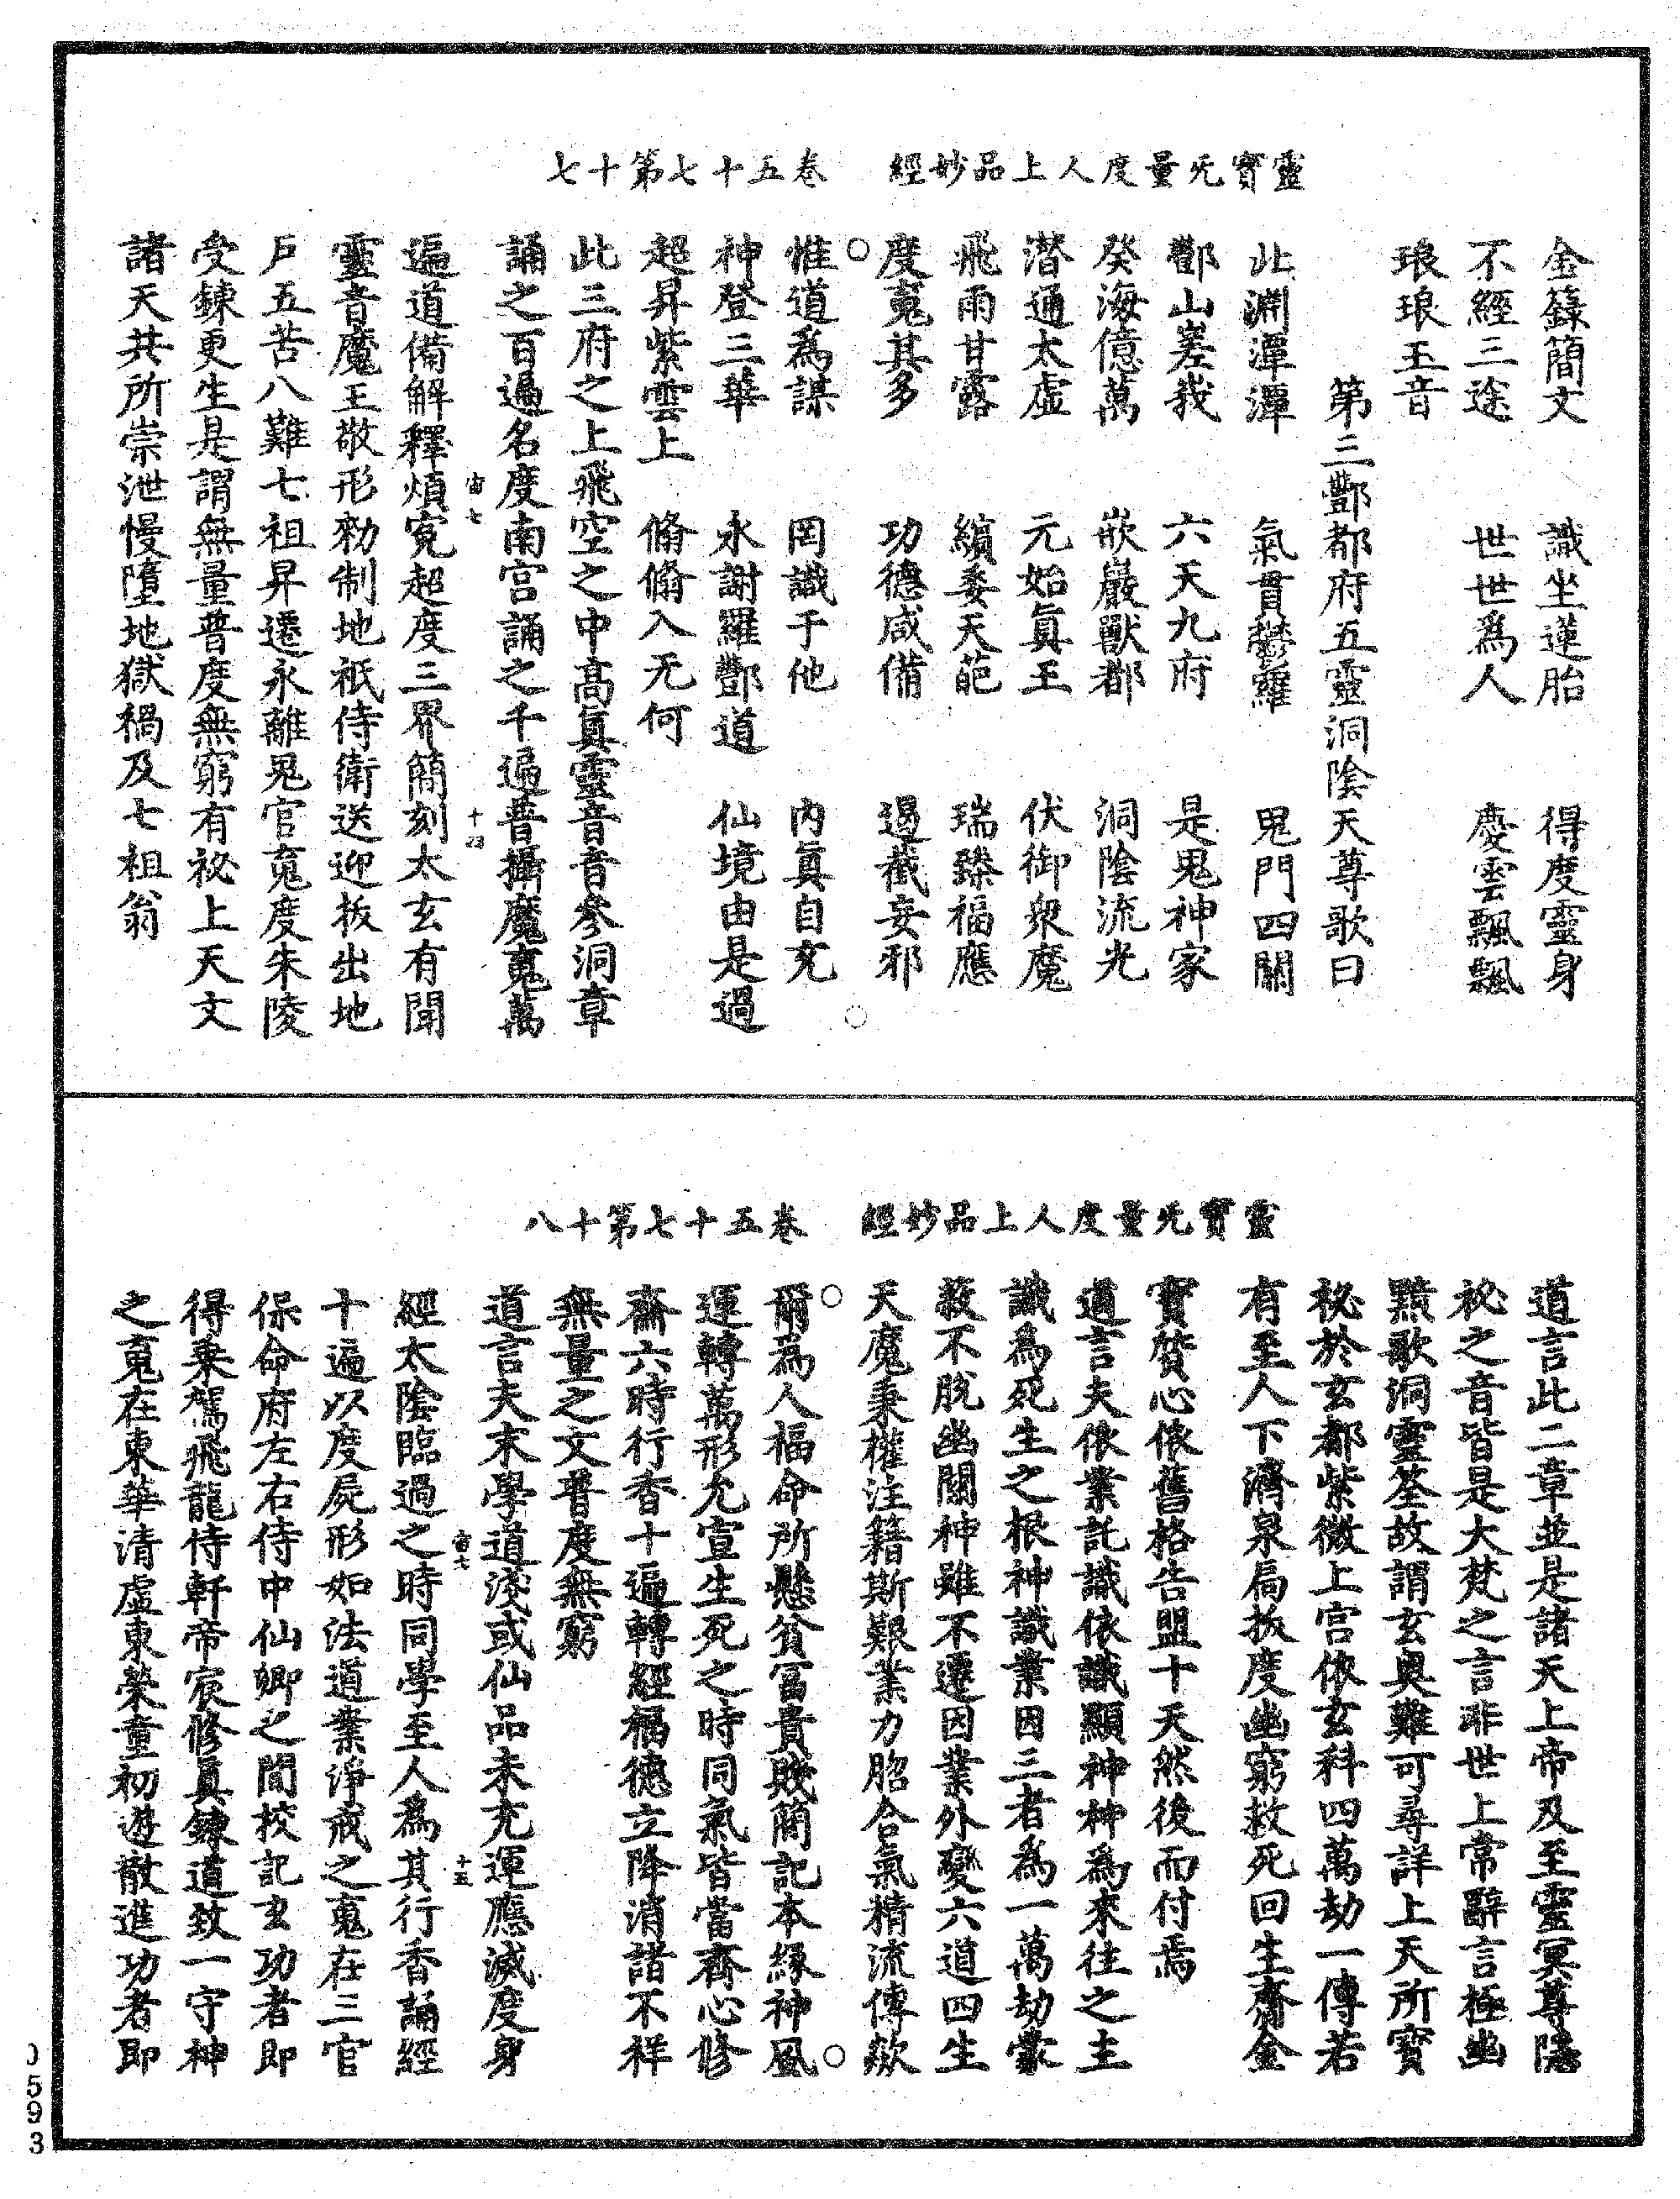 靈寶无量度人上品妙經　卷五十七第十七
金籙簡文　識坐蓮胎　得度靈身
不經三途　世世爲人　慶雲飄飄
琅琅玉音
第三酆都府五靈洞陰天尊歌曰
北淵潭潭　氣貫鬱羅　鬼門四關
酆山嵳峩　六天九府　是鬼神家
癸海億萬　嵌巖獸都　洞陰流光
潜通太虛　元始眞王　伏御衆魔
飛雨甘露　繽委天葩　瑞臻福應
度䰟甚多　功德咸備　遏截妄邪
惟道爲謀　罔識于他　內眞自充
神登三華　永謝羅酆道　仙境由是過
超昇紫雲上　翛翛入无何
此三府之上飛空之中高眞靈音音參洞章
誦之百遍名度南宫誦之千遍普攝魔䰟萬
宙七　十四
遍道備解釋煩寃超度三界簡刻太玄有聞
靈音魔王敬形勑制地祇侍衛送迎拔出地
戶五苦八難七祖昇遷永離鬼官䰟度朱陵
受鍊更生是謂無量普度無窮有祕上天文
諸天共所崇泄慢墮地獄禍及七祖翁
靈寶无量度人上品妙經　卷五十七第十八
道言此二章並是諸天上帝及至靈冥尊隱
祕之音皆是大梵之言非世上常辭言極幽
黙歌洞靈荃故謂玄奥難可尋詳上天所寶
祕於玄都紫微上宫依玄科四萬劫一傳若
有至人下濟泉扃拔度幽窮救死回生齎金
寶質心依舊格告盟十天然後而付焉
道言夫依業託識依識顯神神爲來往之主
識爲死生之根神識業因三者爲一萬劫蒙
救不脫幽關神雖不遷因業外變六道四生
天魔秉權注籍斯艱業力䏚合氣精流傳欻
爾爲人福命所懸貧富貴賤簡記本緣神風
運轉萬形允宣生死之時同氣皆當齊心修
齋六時行香十遍轉經福德立降消諸不祥
無量之文普度無窮
道言夫末學道淺或仙品未充運應滅度身
宙七　十五
經太陰臨過之時同學至人爲其行香誦經
十遍以度屍形如法道業淨戒之䰟在三官
保命府左右侍中仙卿之間校記玄功者即
得乘駕飛龍侍軒帝宸修眞鍊道致一守神
之䰟在東華清虛東榮童初遊散進功者即
0593